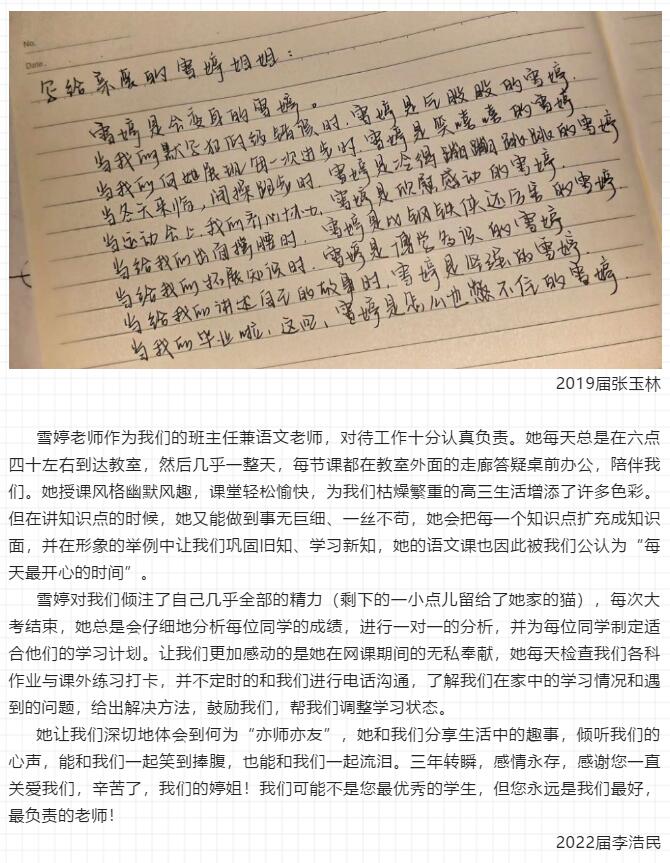 No.
Date.
写给亲爱的雪婷姐姐：
雪婷是会变身的雪婷。
当我们默字犯的错错误时，雪婷是气股股的雪婷，
当我们向她展现每一次进步时，雪婷是笑嘻嘻的雪婷
当冬天来临，间操跑步时，雪婷是冷得蹦蹦跳跳的雪婷
当运动会上我们齐心协力，雪婷是欣慰感动的雪婷，
当给我们出面撑腰时，雪婷是比钢铁侠还厉害的雪婷，
当给我们拓展知识时，雪婷是博学多识的雪婷
当给我们讲述自己的故事时，雪婷是坚强的雪婷，
当我们毕业啦，这回，雪婷是怎么也憋不住的雪婷，
2019届张玉林
雪婷老师作为我们的班主任兼语文老师，对待工作十分认真负责。她每天总是在六点
四十左右到达教室，然后几乎一整天，每节课都在教室外面的走廊答疑桌前办公，陪伴我
们。她授课风格幽默风趣，课堂轻松愉快，为我们枯燥繁重的高三生活增添了许多色彩。
但在讲知识点的时候，她又能做到事无巨细、一丝不苟，她会把每一个知识点扩充成知识
面，并在形象的举例中让我们巩固旧知、学习新知，她的语文课也因此被我们公认为“每
天最开心的时间”。
雪婷对我们倾注了自己几乎全部的精力（剩下的一小点儿留给了她家的猫），每次大
考结束，她总是会仔细地分析每位同学的成绩，进行一对一的分析，并为每位同学制定适
合他们的学习计划。让我们更加感动的是她在网课期间的无私奉献，她每天检查我们各科
作业与课外练习打卡，并不定时的和我们进行电话沟通，了解我们在家中的学习情况和遇
到的问题，给出解决方法，鼓励我们，帮我们调整学习状态。
她让我们深切地体会到何为“亦师亦友”，她和我们分享生活中的趣事，倾听我们的
心声，能和我们一起笑到捧腹，也能和我们一起流泪。三年转瞬，感情永存，感谢您一直
关爱我们，辛苦了，我们的婷姐！我们可能不是您最优秀的学生，但您永远是我们最好，
最负责的老师！
2022届李浩民